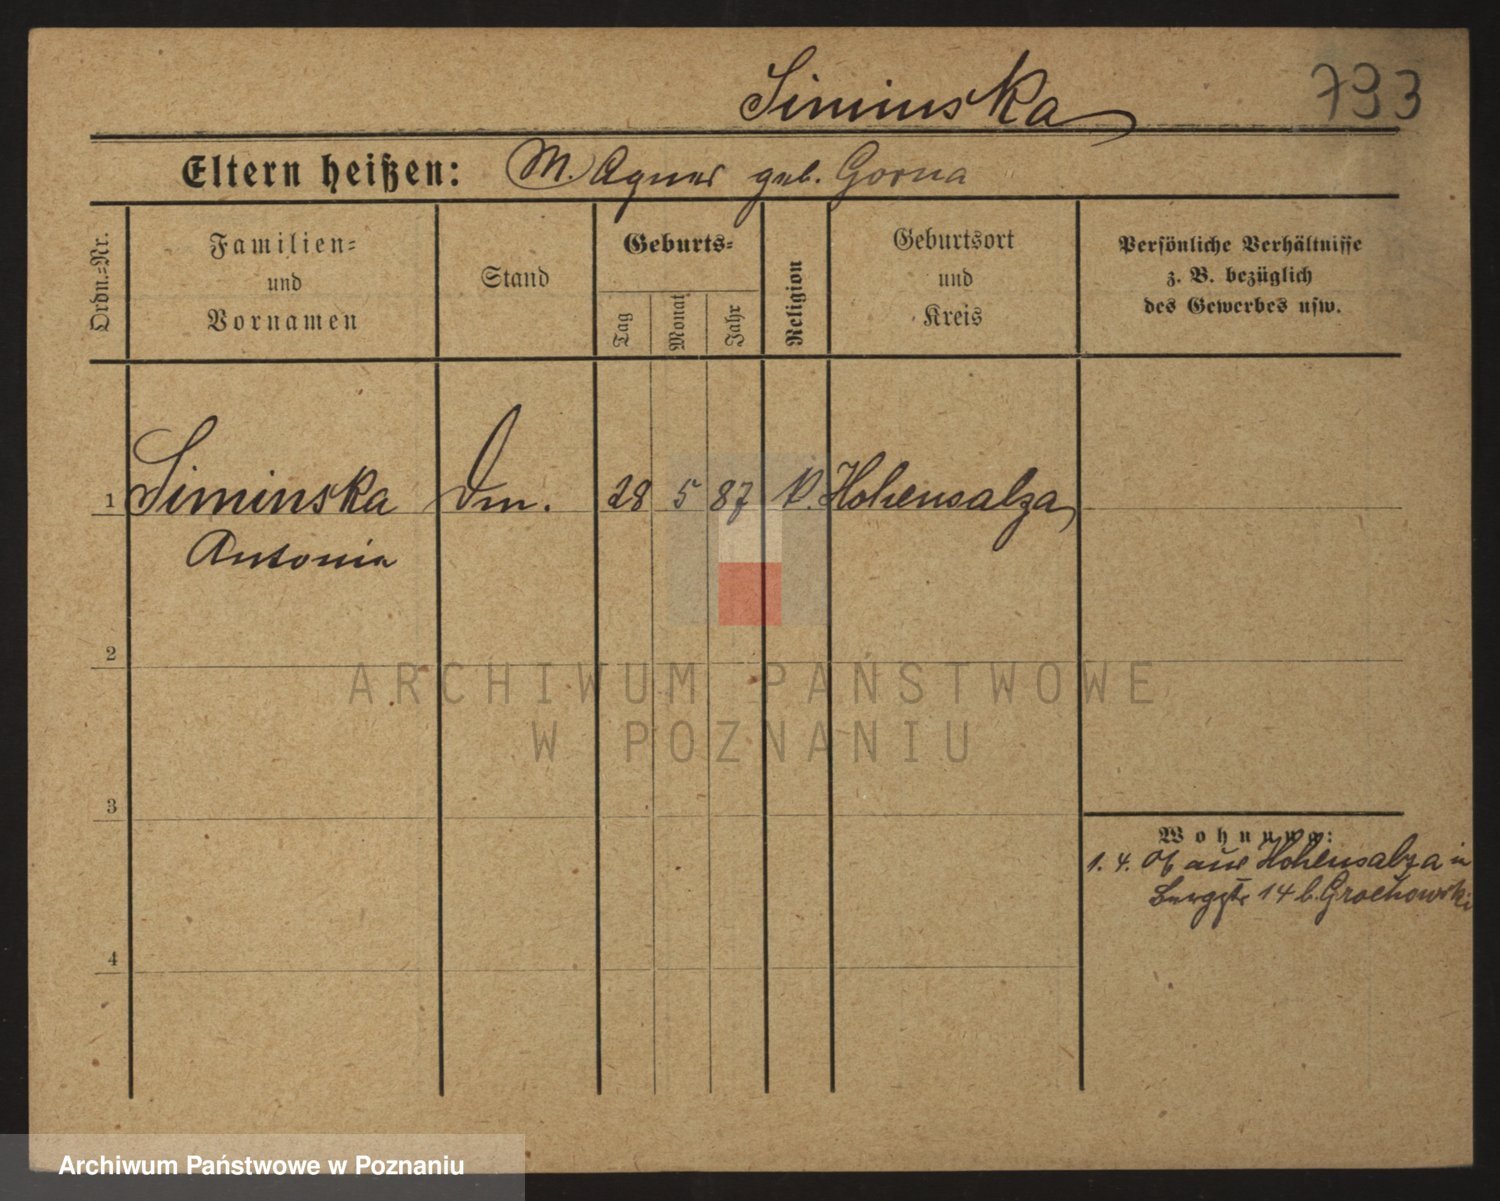 Siminska
793
Eltern heißen: M. Agnes geb. Gorna
Ordn.=Nr.
Familien=
und
Vornamen
Stand
Geburts=
Tag
Monat
Jahr
Religion
Geburtsort
und
Kreis
Persönliche Verhältnisse
z. B. bezüglich
des Gewerbes usw.
1 Siminska 28 5 87 K. Hohensalza
Antonia
2
3
4
Wohnung:
1. 4. 06 aus Hohensalza in
Bergstr 14 b. Grochowski
ARCHIWUM PAŃSTWOWE
W POZNANIU
Archiwum Państwowe w Poznaniu